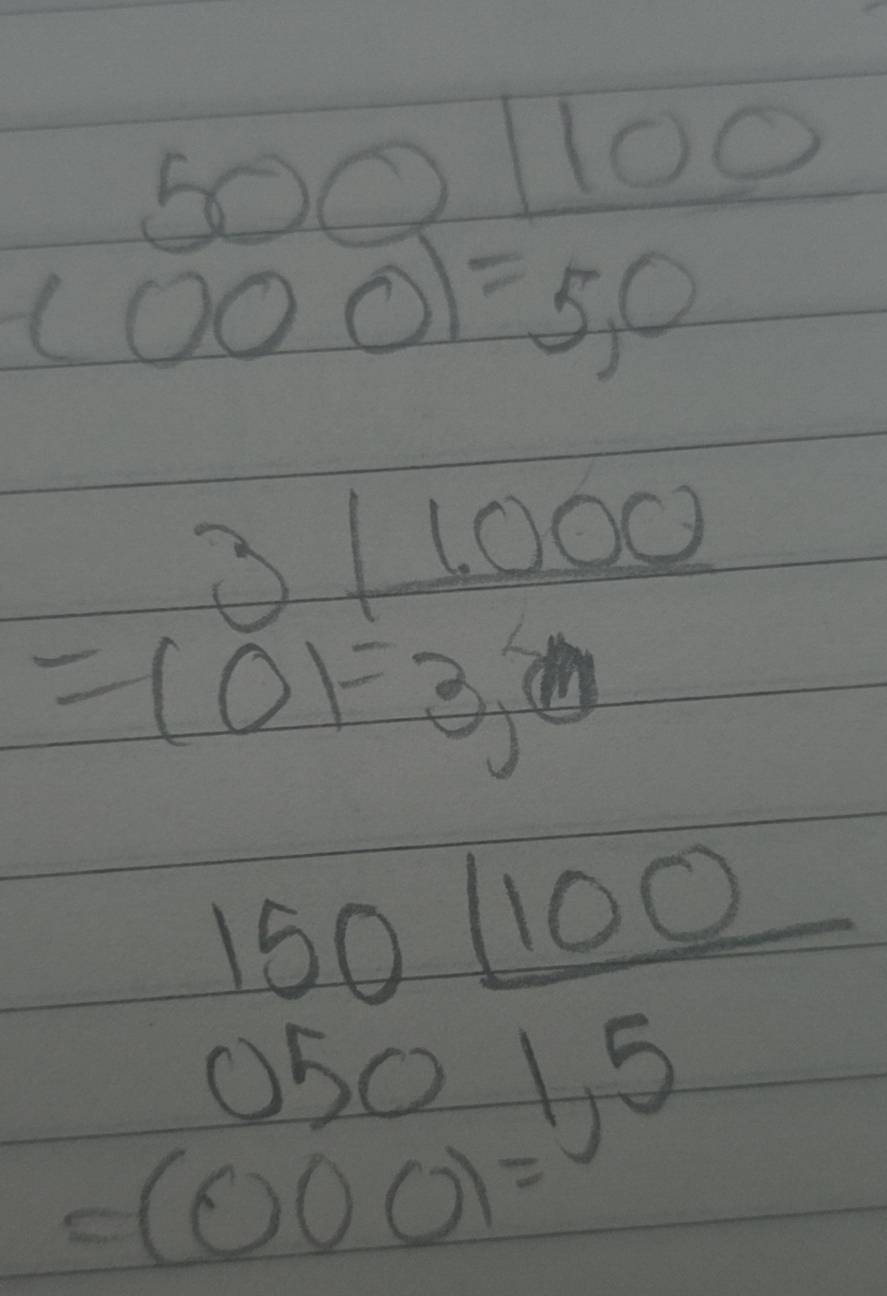 500 | 100
(000) = 5,0
3 | 1.000
= (0) = 3,
150 | 100
050 1,5
= (000) =